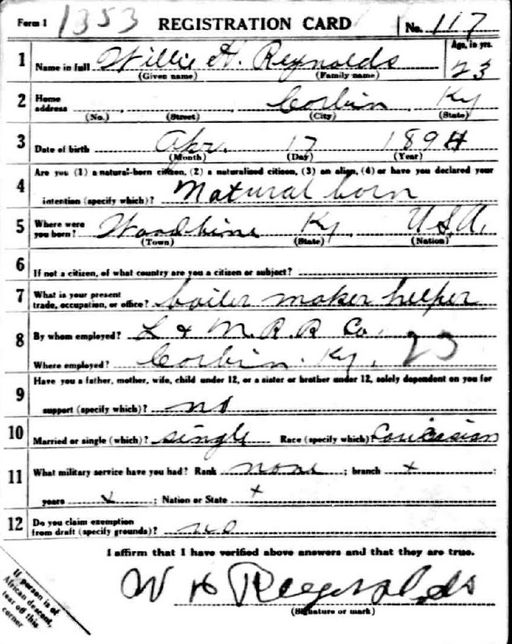 Form 1 1353 REGISTRATION CARD No. 117
1 Name in full Willie H. Reynolds Age, in yrs. 23
(Given name) (Family name)
2 Home address Corbin Ky
(No.) (Street) (City) (State)
3 Date of birth Apr. 17 1894
(Month) (Day) (Year)
4 Are you (1) a natural-born citizen, (2) a naturalized citizen, (3) an alien, (4) or have you declared your
intention (specify which)? Natural born
5 Where were you born? Woodbine Ky. U.S.A.
(Town) (State) (Nation)
6 If not a citizen, of what country are you a citizen or subject?
7 What is your present trade, occupation, or office? boiler maker helper
8 By whom employed? L & N. R. R Co.
Where employed? Corbin. Ky. 23
9 Have you a father, mother, wife, child under 12, or a sister or brother under 12, solely dependent on you for
support (specify which)? no
10 Married or single (which)? single Race (specify which) Caucasian
11 What military service have you had? Rank none ; branch x
years x ; Nation or State x
12 Do you claim exemption from draft (specify grounds)? no
I affirm that I have verified above answers and that they are true.
W H Reynolds
(Signature or mark)
If person is of
African descent,
tear off this
corner